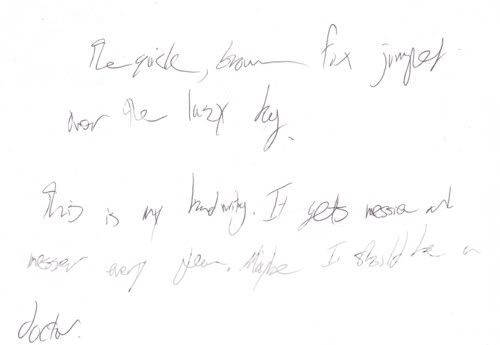 The quick, brown fox jumped
over the lazy dog.
This is my handwriting. It gets messier and
messier every year. Maybe I should be a
doctor.